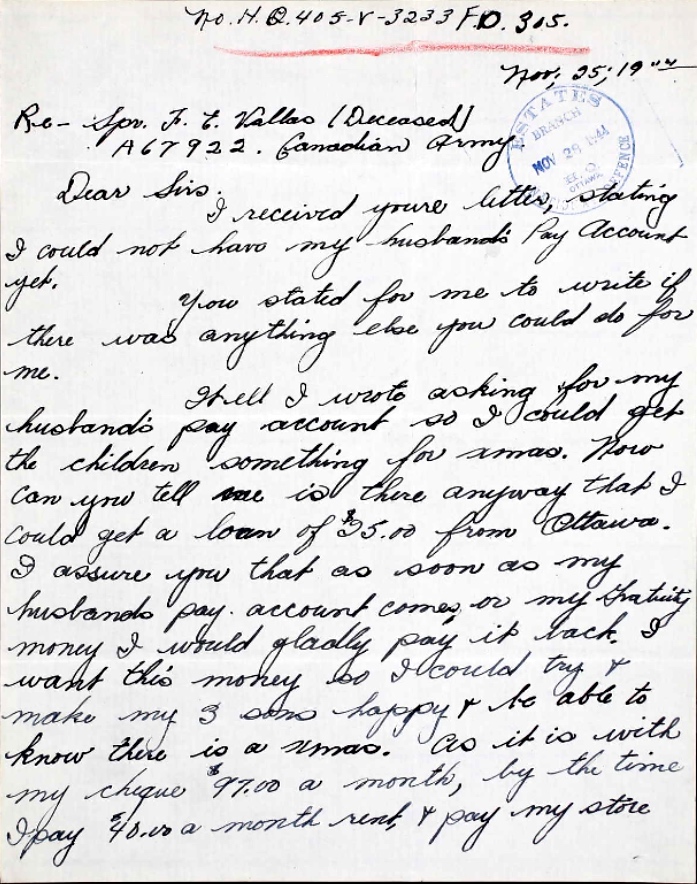 No. H.Q. 405-V-3233 F.D. 305.
Nov. 25, 19 44
Re- Spr. F. E. Vallas (Deceased)
A67922. Canadian Army
ESTATES
BRANCH
NOV 29 1944
H.Q.
OTTAWA
DEFENCE
Dear Sirs.
I received youre letter, stating
I could not have my husband's Pay Account
yet.
You stated for me to write if
there was anything else you could do for
me.
Well I wrote asking for my
husband's pay account so I could get
the children something for xmas. Now
can you tell me is there anyway that I
could get a loan of $35.00 from Ottawa.
I assure you that as soon as my
husbands pay. account comes, or my Gratuity
money I would gladly pay it back. I
want this money so I could try &
make my 3 sons happy & be able to
know there is a xmas. As it is with
my cheque $97.00 a month, by the time
I pay $40.00 a month rent, & pay my store